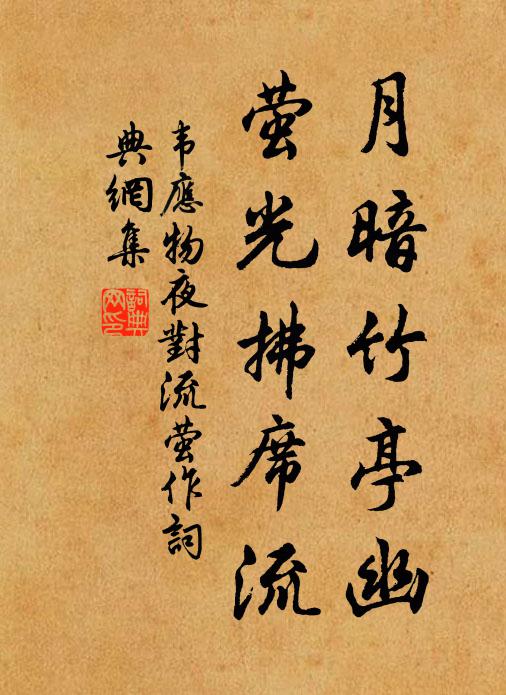 月暗竹亭幽
萤光拂席流
韦應物夜對流萤作詞
典網集
詞典
网印